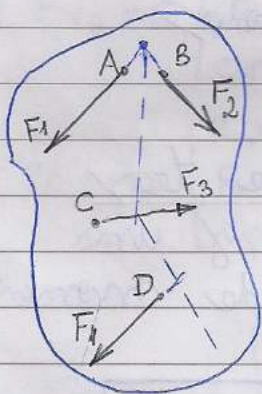 A B
F1 F2
C F3
D
F4